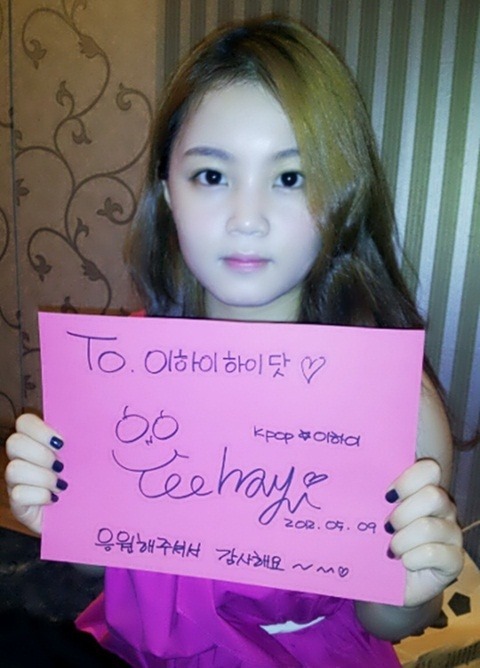 To. 이하이하이닷 ♡
Kpop ☆이하이
Leehayi
2012. 05. 09
응원해주셔서 감사해요 ~~♡